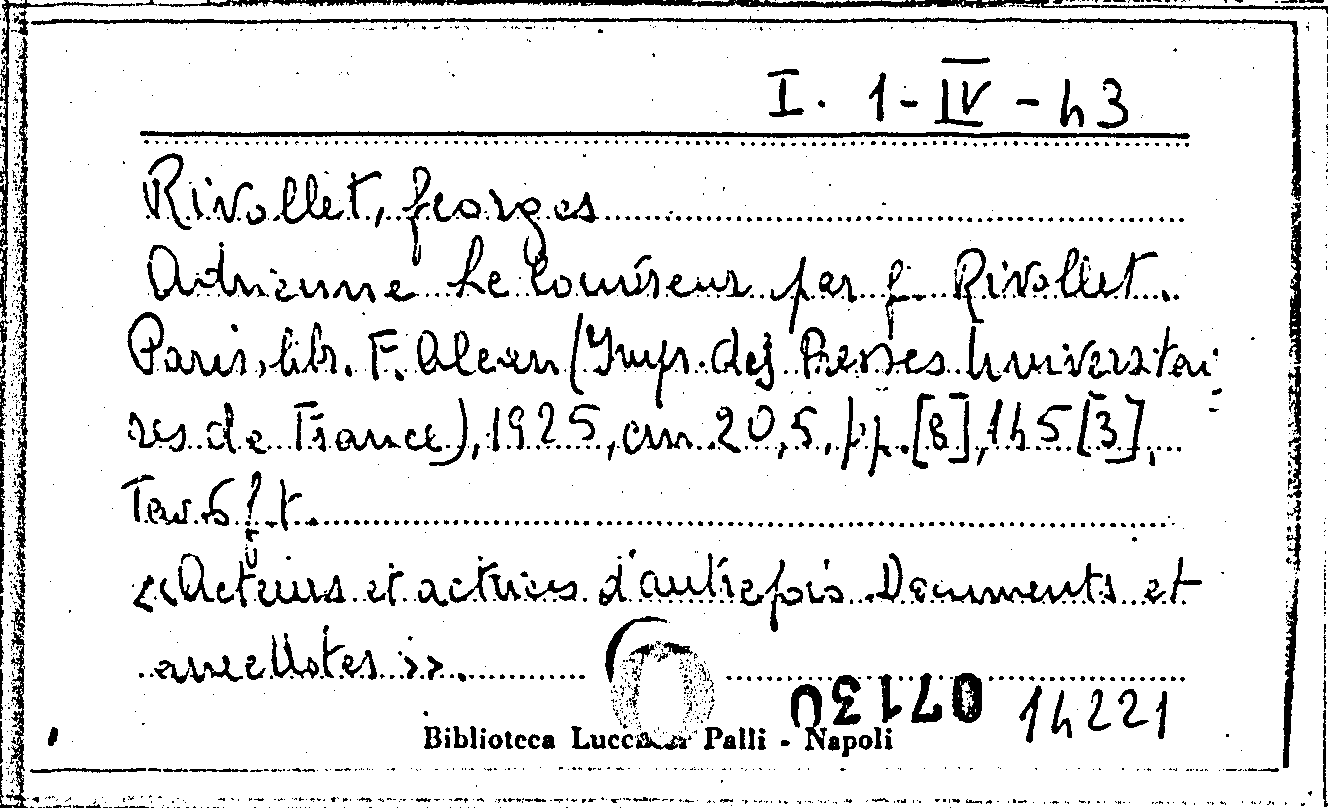 I. 1-IV-43
Rivollet, Georges
Adrienne Le Couvreur par G. Rivollet.
Paris, libr. F. Alcan (Impr. des Presses Universitai
res de France), 1925, cm. 20,5, pp. [8], 145 [3],
Tav. 6 f. t.
«Acteurs et actrices d'autrefois. Documents et
anecdotes».
07130 14221
Biblioteca Lucchesi Palli - Napoli